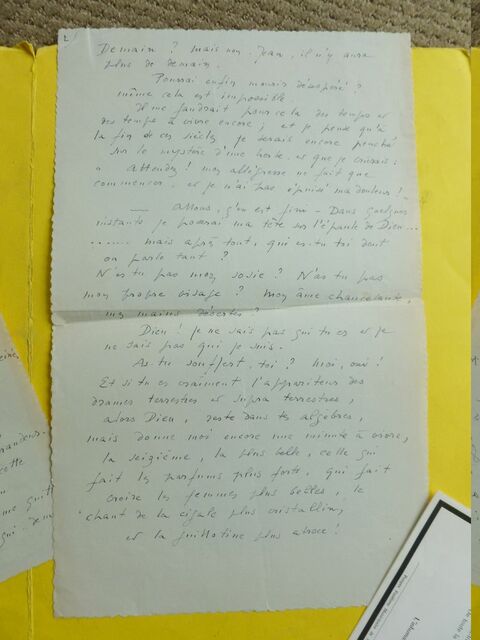 2
Demain ? Mais non Jean, il n'y aura
plus de demain.
Pourrai enfin mourir désespéré ?
même cela est impossible.
Il me faudrait pour cela des temps et
des temps à vivre encore ; et je pense qu'à
la fin de ces siècles je serais encore penché
sur le mystère d'une herbe et que je crierais :
" Attendez ! mon allégresse ne fait que
commencer, et je n'ai pas épuisé ma douleur !
— Allons, c'en est fini - Dans quelques
instants je poserai ma tête sur l'épaule de Dieu ...
....... mais après tout, qui es-tu toi dont
on parle tant ?
N'es tu pas mon sosie ? N'as tu pas
mon propre visage ? Mon âme chancelante,
mes mains désertes ?
Dieu ! je ne sais pas qui tu es et je
ne sais pas qui je suis.
As-tu souffert, toi ? moi, oui !
Et si tu es vraiment l'appariteur des
drames terrestres et supra terrestres,
alors Dieu, reste dans tes algèbres,
mais donne moi encore une minute à vivre,
la seizième, la plus belle, celle qui
fait les parfums plus forts, qui fait
croire les femmes plus belles, le
chant de la cigale plus cristallin,
et la guillotine plus atroce !
cette